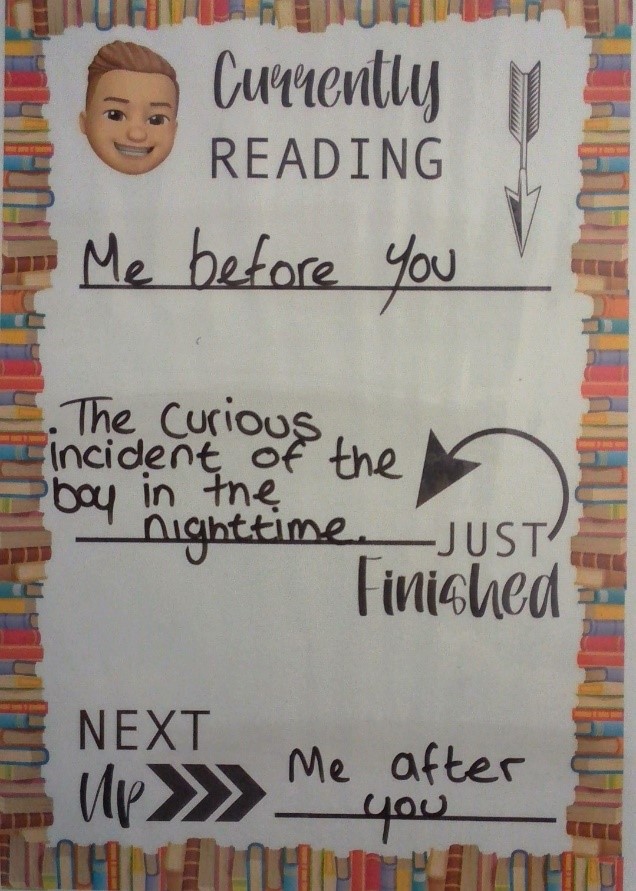 Currently
READING
Me before you
. The Curious
incident of the
boy in the
nighttime.
JUST
Finished
NEXT
Up
Me after
you